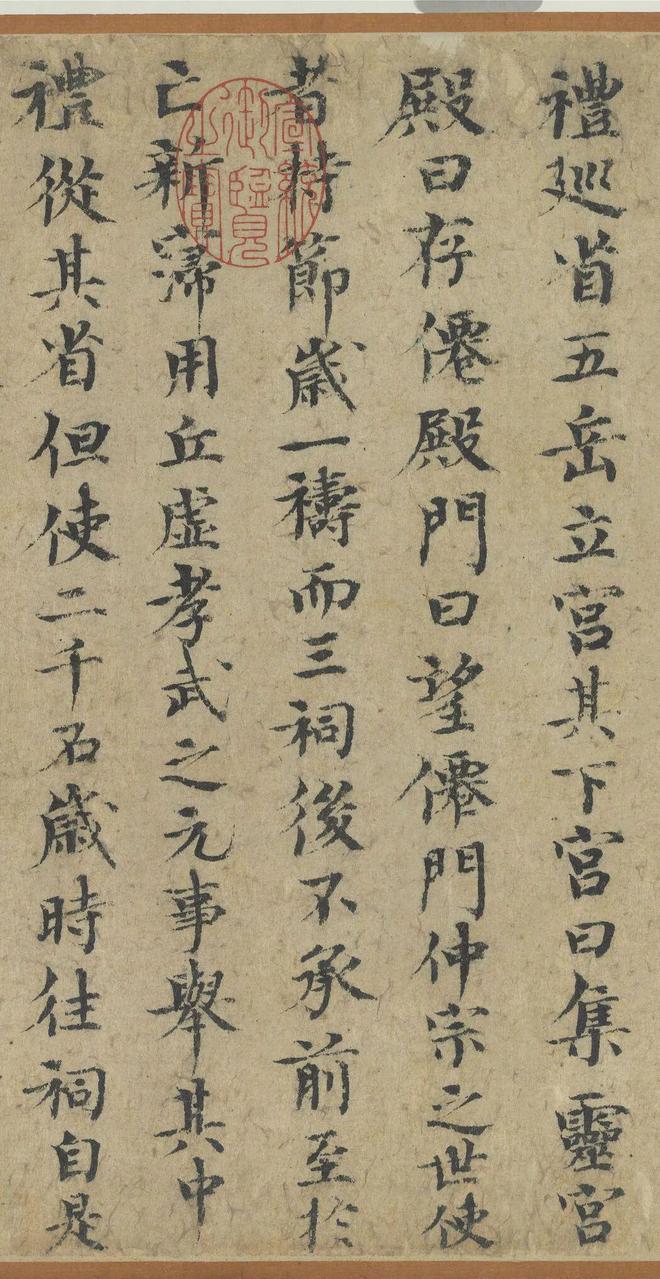 禮巡省五岳立宮其下宮曰集靈宮
殿曰存僊殿門曰望僊門仲宗之世使
者持節歲一禱而三祠後不承前至扵
亡新寖用丘虛孝武之元事舉其中
禮從其省但使二千石歲時往祠自是
嘉慶御覽之寶